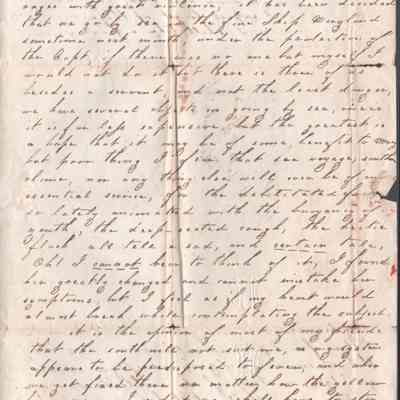 rages with great violence, it has been decided
that we go by sea in the fine Ship
sometime next month under the protection of
the Capt, if there was no one but myself I
would not do it but there is three of us
besides a servant, and not the least danger,
we have several objects in going by sea, *
it is far less expensive, but the greatest is
a hope that it may be of some benefit to
but poor thing I fear that sea voyage, south
clime, nor any thing else will ever be of any
essential service, for the debilitated
so lately animated with the buoyancy of
youth, the deep seated cough, the hectic
flush all tell a sad, and certain tale,
Oh! I cannot bear to think of it, I found
her greatly changed and cannot mistake her
symptoms, but I feel as if my heart would
almost break while contemplating the subject.
it is the opinion of most of my friends
that the south will not suit me, as my system
appears to be predisposed to fever, and also
we get fixed there no matter how the yellow